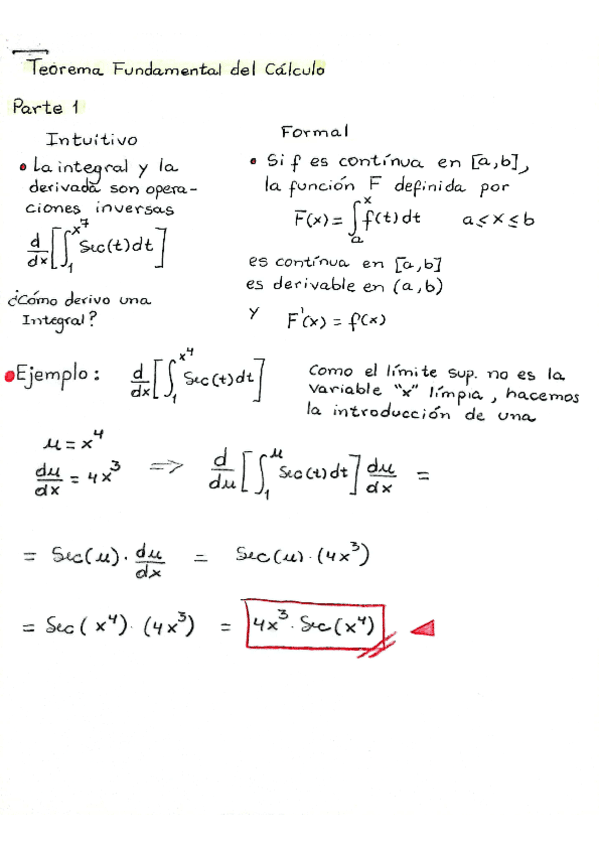 Teorema Fundamental del Cálculo
Parte 1
Intuitivo
• La integral y la
derivada son opera-
ciones inversas
d/dx [∫₁^(x⁷) Sec(t)dt]
¿Cómo derivo una
Integral?
Formal
• Si f es contínua en [a,b],
la función F definida por
F(x) = ∫ₐˣ f(t) dt a ≤ x ≤ b
es contínua en [a,b]
es derivable en (a,b)
y F'(x) = f(x)
• Ejemplo: d/dx [∫₁^(x⁴) Sec(t)dt]
Como el límite sup. no es la
variable "x" límpia, hacemos
la introducción de una
u = x⁴
du/dx = 4x³ => d/du [∫₁^u Sec(t)dt] du/dx =
= Sec(u) · du/dx = Sec(u) · (4x³)
= Sec(x⁴) · (4x³) = 4x³ · Sec(x⁴)